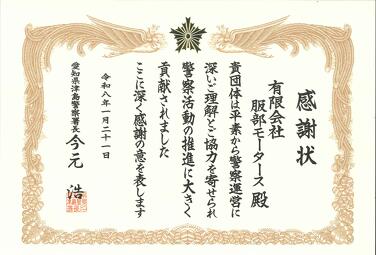 感謝状
有限会社
服部モータース 殿
貴団体は平素から警察運営に
深いご理解とご協力を寄せられ
警察活動の推進に大きく
貢献されました
ここに深く感謝の意を表します
令和八年一月二十一日
愛知県津島警察署長 今元 浩